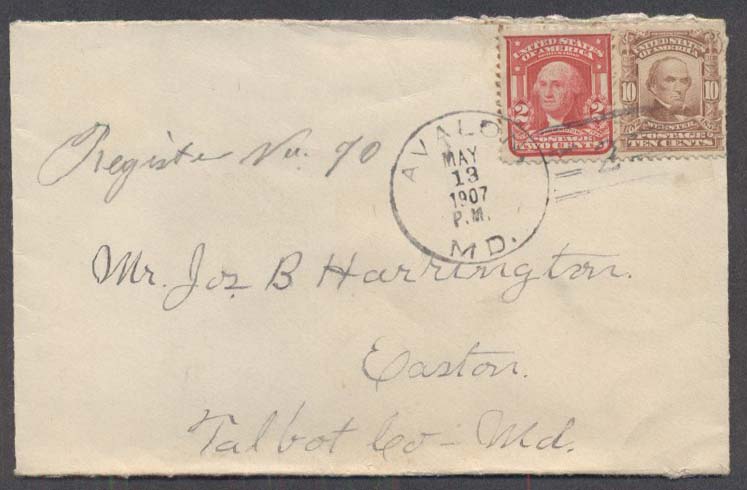 UNITED STATES
OF AMERICA
2 2
POSTAGE
TWO CENTS
UNITED STATES
OF AMERICA
10 10
WEBSTER
POSTAGE
TEN CENTS
AVALON
MAY
13
1907
P.M.
MD.
2
Register No. 90
Mr. Jos B Harrington.
Easton.
Talbot Co - Md.